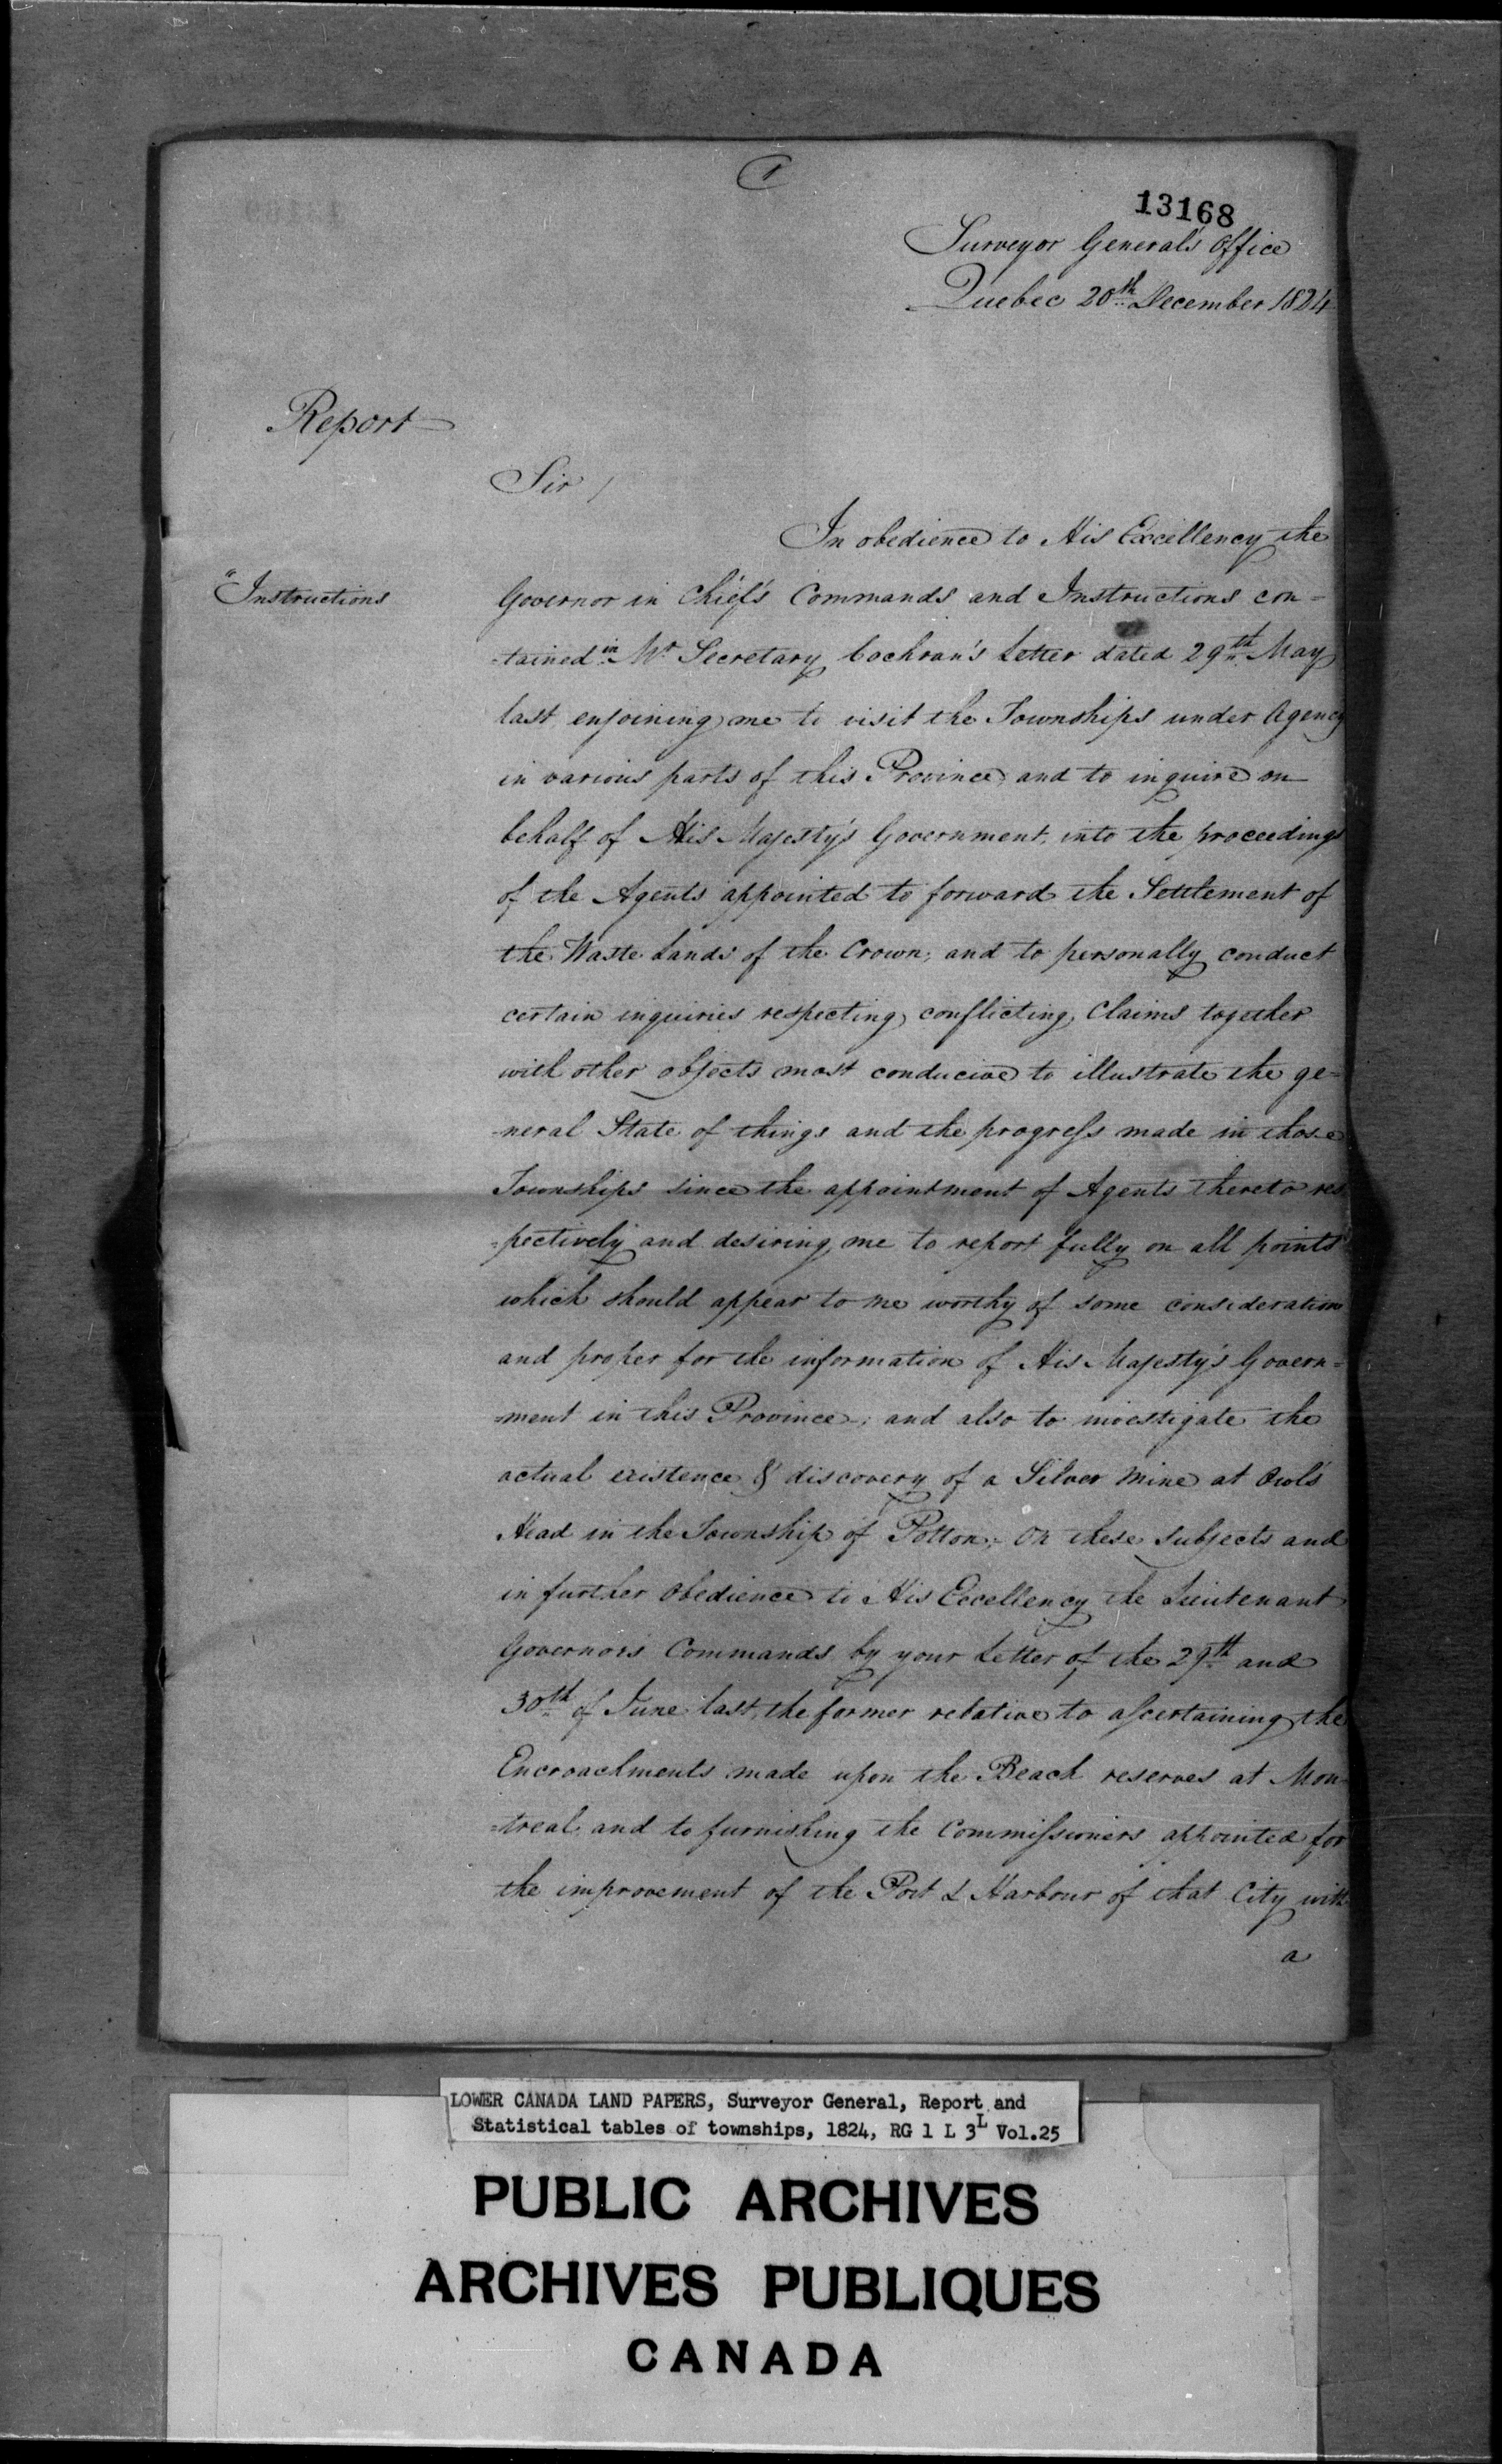 1
13168
Surveyor General's Office
Quebec 20th December 1824
Report
Sir /
In obedience to His Excellency the
"Instructions
Governor in Chief's Commands and Instructions con=
=tained in Mr Secretary Cochran's Letter dated 29th May
last enjoining me to visit the Townships under Agency
in various parts of this Province and to inquire on
behalf of His Majesty's Government, into the proceedings
of the Agents appointed to forward the Settlement of
the Waste Lands of the Crown; and to personally conduct
certain inquiries respecting conflicting Claims together
with other objects most conducive to illustrate the ge=
=neral State of things and the progress made in those
Townships since the appointment of Agents thereto res
=pectively and desiring me to report fully on all points
which should appear to me worthy of some consideration
and proper for the information of His Majesty's Govern=
=ment in this Province; and also to investigate the
actual existence & discovery of a Silver Mine at Owl's
Head in the Township of Potton; On these Subjects and
in further Obedience to His Excellency the Lieutenant
Governors Commands by your Letter of the 29th and
30th of June last, the former relative to ascertaining the
Encroachments made upon the Beach reserves at Mon
=treal and to furnishing the Commissioners appointed for
the improvement of the Port & Harbour of that City with
a
LOWER CANADA LAND PAPERS, Surveyor General, Report and
Statistical tables of townships, 1824, RG 1 L 3L Vol.25
PUBLIC ARCHIVES
ARCHIVES PUBLIQUES
CANADA